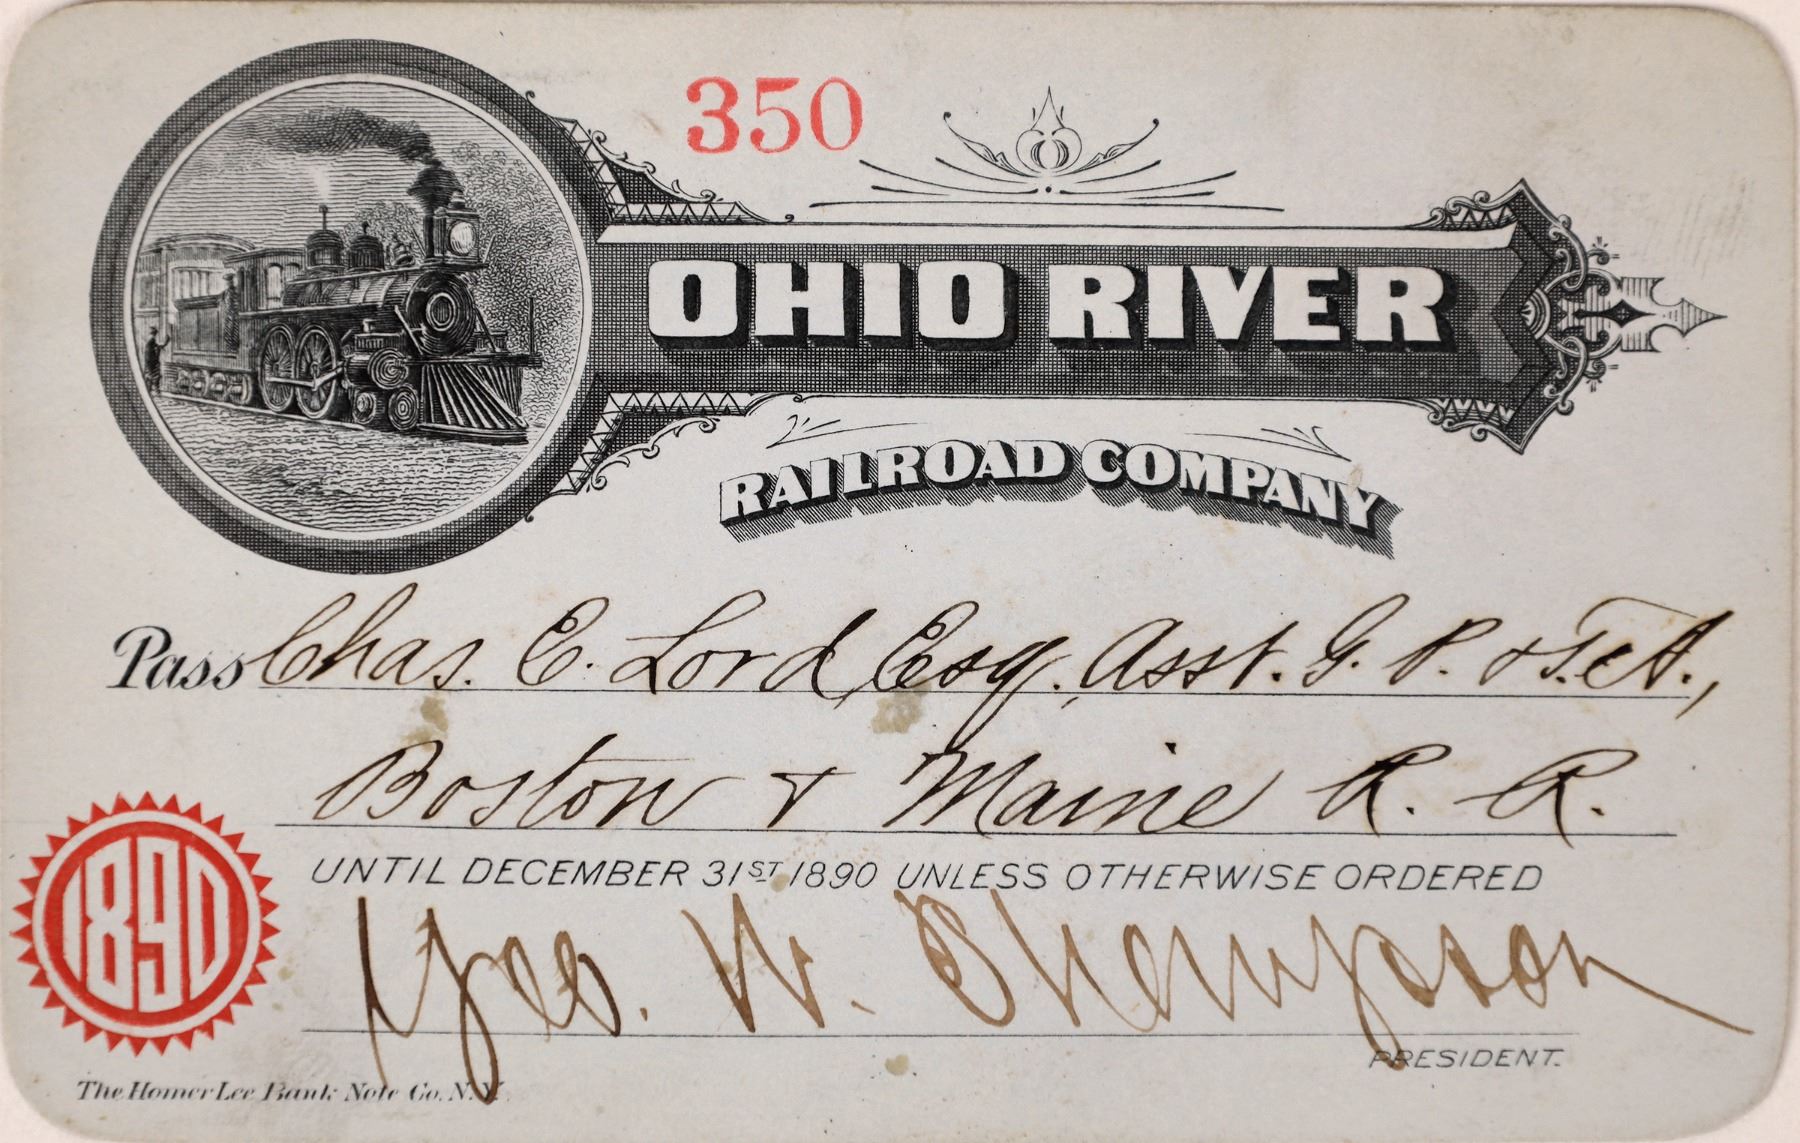 350
OHIO RIVER
RAILROAD COMPANY
Pass Chas. E. Lord, Esq., Asst. G. P. & T. A.,
Boston & Maine R. R.
1890
UNTIL DECEMBER 31ST 1890 UNLESS OTHERWISE ORDERED
Geo. W. Thompson
PRESIDENT.
The Homer Lee Bank Note Co. N.Y.